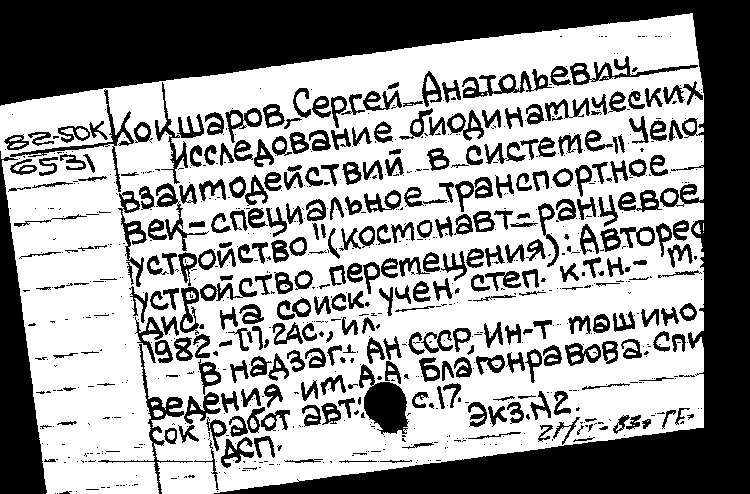 82-50К
6531
Кокшаров, Сергей Анатольевич.
Исследование биодинатических
взаитодействий в систете „Чело-
век-специальное транспортное
устройство" (костонавт-ранцевое
устройство перетещения): Автореф
дис. на соиск. учен. степ. к.т.н.- М.:
1982.-[1], 24с., ил.
В надзаг.: Ан СССР, Ин-т машино-
ведения им. А.А. Благонравова. Спи
сок работ авт: с.17.
Экз.N2.
ДСП.